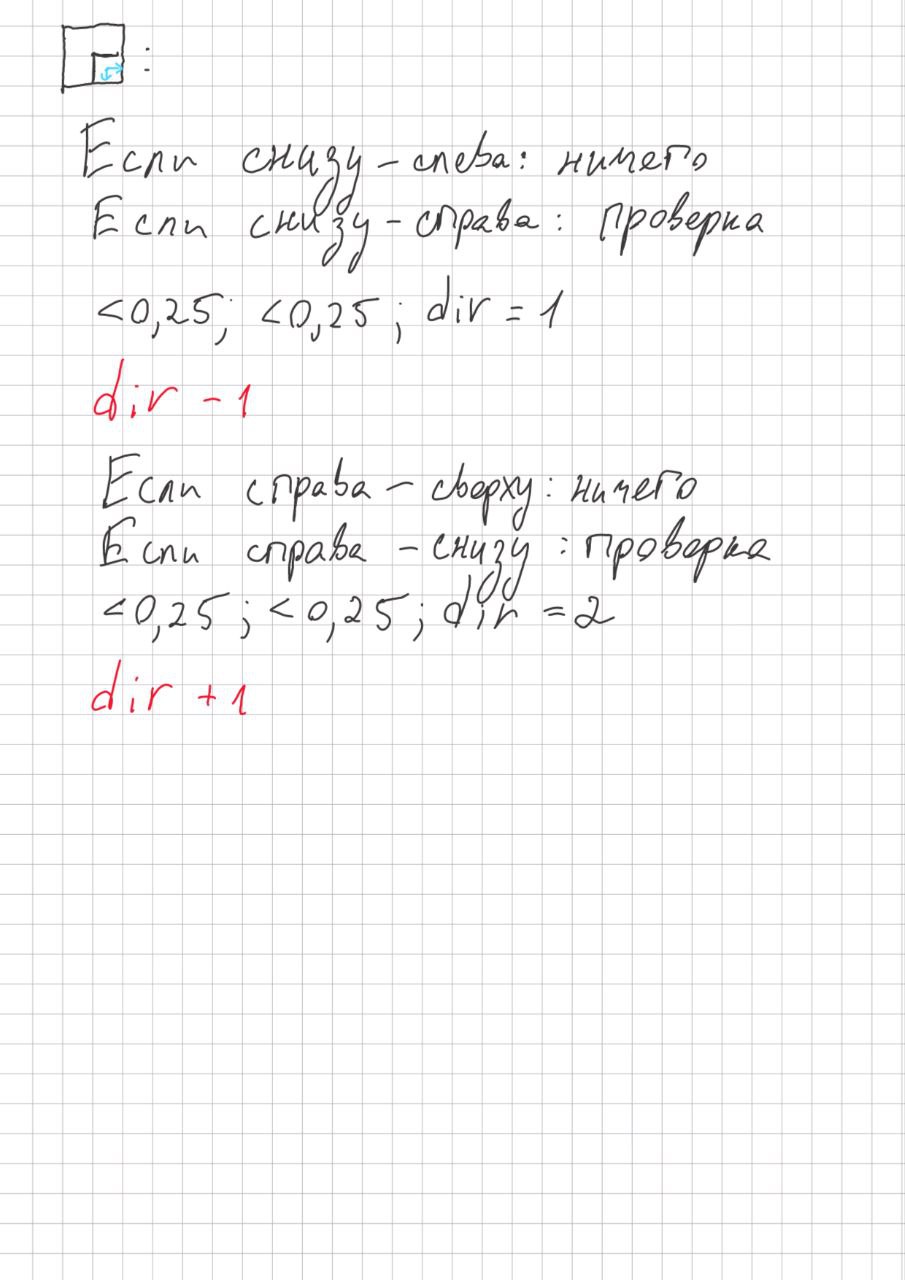 :
Если снизу - слева: ничего
Если снизу - справа: проверка
<0,25; <0,25; dir = 1
dir - 1
Если справа - сверху: ничего
Если справа - снизу: проверка
<0,25; <0,25; dir = 2
dir + 1